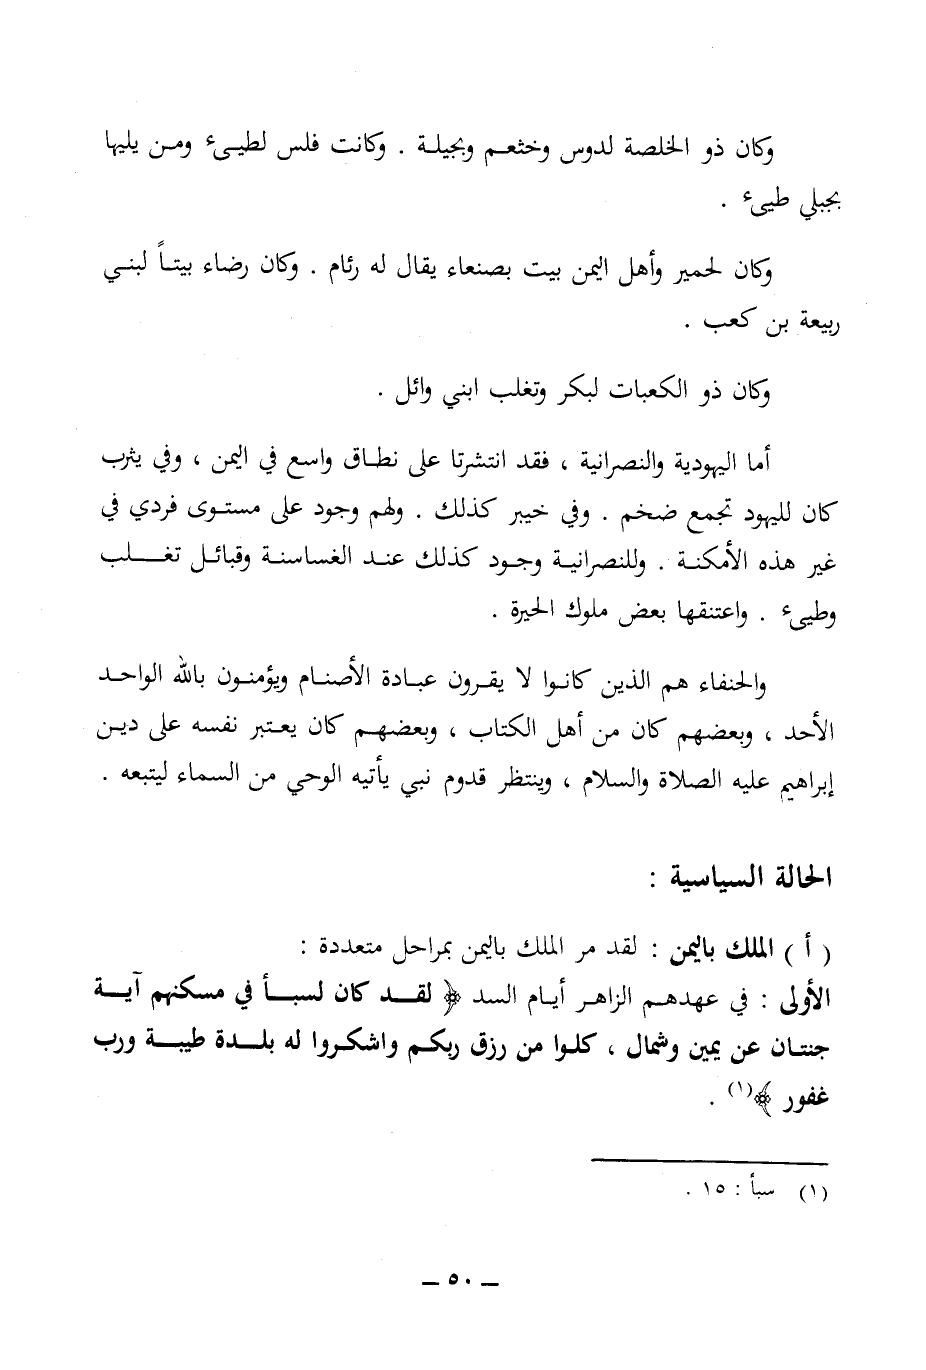 وكان ذو الخلصة لدوس وخثعم وبجيلة . وكانت فلس لطيىء ومن يليها
بجبلي طيىء .
وكان لحمير وأهل اليمن بيت بصنعاء يقال له رئام . وكان رضاء بيتاً لبني
ربيعة بن كعب .
وكان ذو الكعبات لبكر وتغلب ابني وائل .
أما اليهودية والنصرانية ، فقد انتشرتا على نطاق واسع في اليمن ، وفي يثرب
كان لليهود تجمع ضخم . وفي خيبر كذلك . ولهم وجود على مستوى فردي في
غير هذه الأمكنة . وللنصرانية وجود كذلك عند الغساسنة وقبائل تغلب
وطيىء . واعتنقها بعض ملوك الحيرة .
والحنفاء هم الذين كانوا لا يقرون عبادة الأصنام ويؤمنون بالله الواحد
الأحد ، وبعضهم كان من أهل الكتاب ، وبعضهم كان يعتبر نفسه على دين
إبراهيم عليه الصلاة والسلام ، وينتظر قدوم نبي يأتيه الوحي من السماء ليتبعه .
الحالة السياسية :
( أ ) الملك باليمن : لقد مر الملك باليمن بمراحل متعددة :
الأولى : في عهدهم الزاهر أيام السد ﴿ لقد كان لسبأ في مسكنهم آية
جنتان عن يمين وشمال ، كلوا من رزق ربكم واشكروا له بلدة طيبة ورب
غفور ﴾(١) .
(١) سبأ : ١٥ .
– ٥٠ –